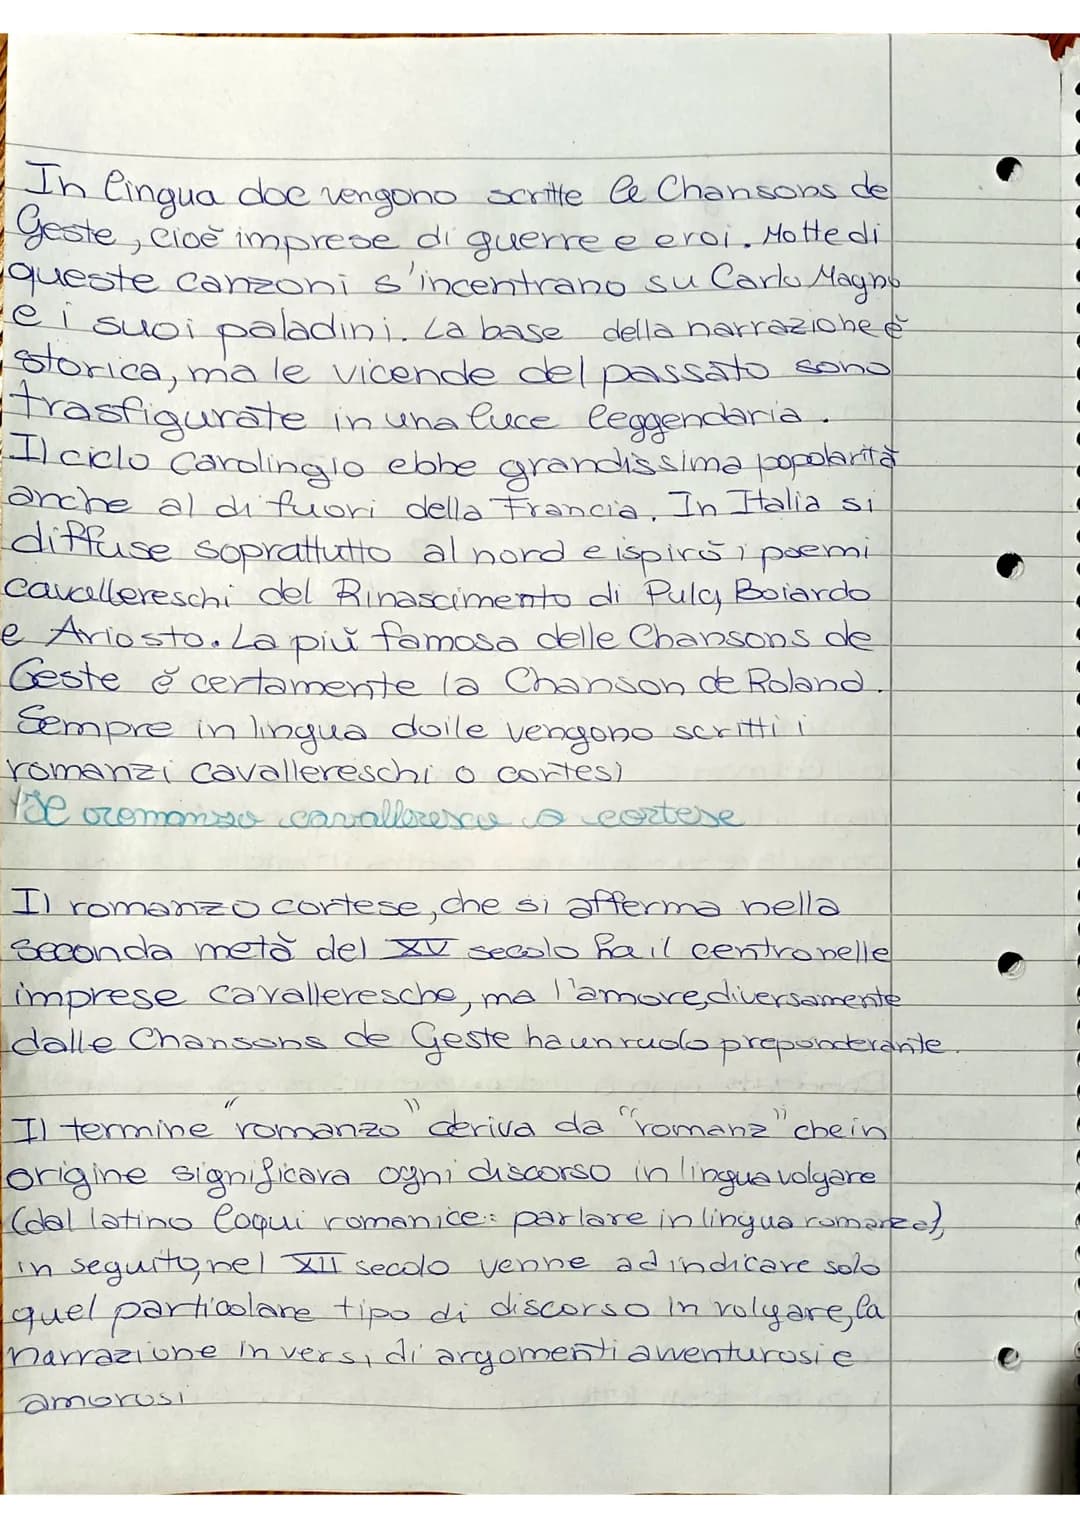 In lingua doc vengono scritte le Chansons de
Geste, cioè imprese di guerre e eroi. Motte di
queste canzoni s'incentrano su Carlo Magno
e i suoi paladini. La base della narrazione è
storica, ma le vicende del passato sono
trasfigurate in una luce leggendaria.
Il ciclo carolingio ebbe grandissima popolarità
anche al di fuori della Francia. In Italia si
diffuse soprattutto al nord e ispirò i poemi
cavallereschi del Rinascimento di Pulci, Boiardo
e Ariosto. La più famosa delle Chansons de
Geste è certamente la Chanson de Roland.
Sempre in lingua doile vengono scritti i
romanzi cavallereschi o cortesi
romanzo cavalleresco o cortese
Il romanzo cortese, che si afferma nella
seconda metà del XV secolo ha il centro nelle
imprese cavalleresche, ma l'amore, diversamente
dalle Chansons de Geste ha un ruolo preponderante.
Il termine "romanzo" deriva da "romanz" che in
origine significava ogni discorso in lingua volgare
(dal latino loqui romanice: parlare in lingua romanza),
in seguito, nel XII secolo venne ad indicare solo
quel particolare tipo di discorso in volgare, la
narrazione in versi, di argomenti avventurosi e
amorosi